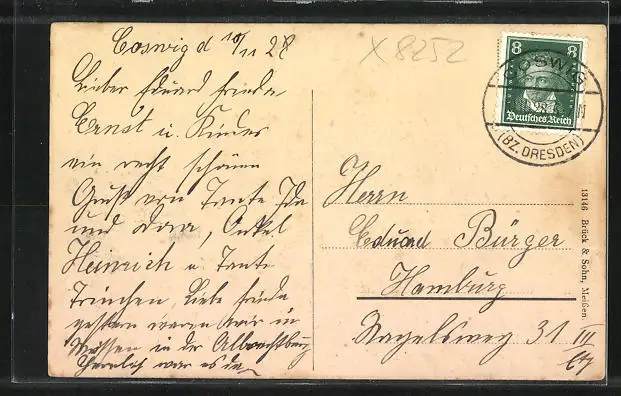 Coswig d 10/11 28
Lieber Eduard Frieda
Ernst u. Kinder
ein recht schönen
Gruß von Tante Ida
und Dora, Onkel
Heinrich u Tante
Trinchen, Liebe Frieda
gestern waren wir in
Meissen in der Albrechtburg
Herrlich war es da
X 8252
8 8
Deutsches Reich
COSWIG
(BZ. DRESDEN)
Herrn
Eduard Bürger
Hamburg
Nagelsweg 31 III
13146 Brück & Sohn, Meißen.